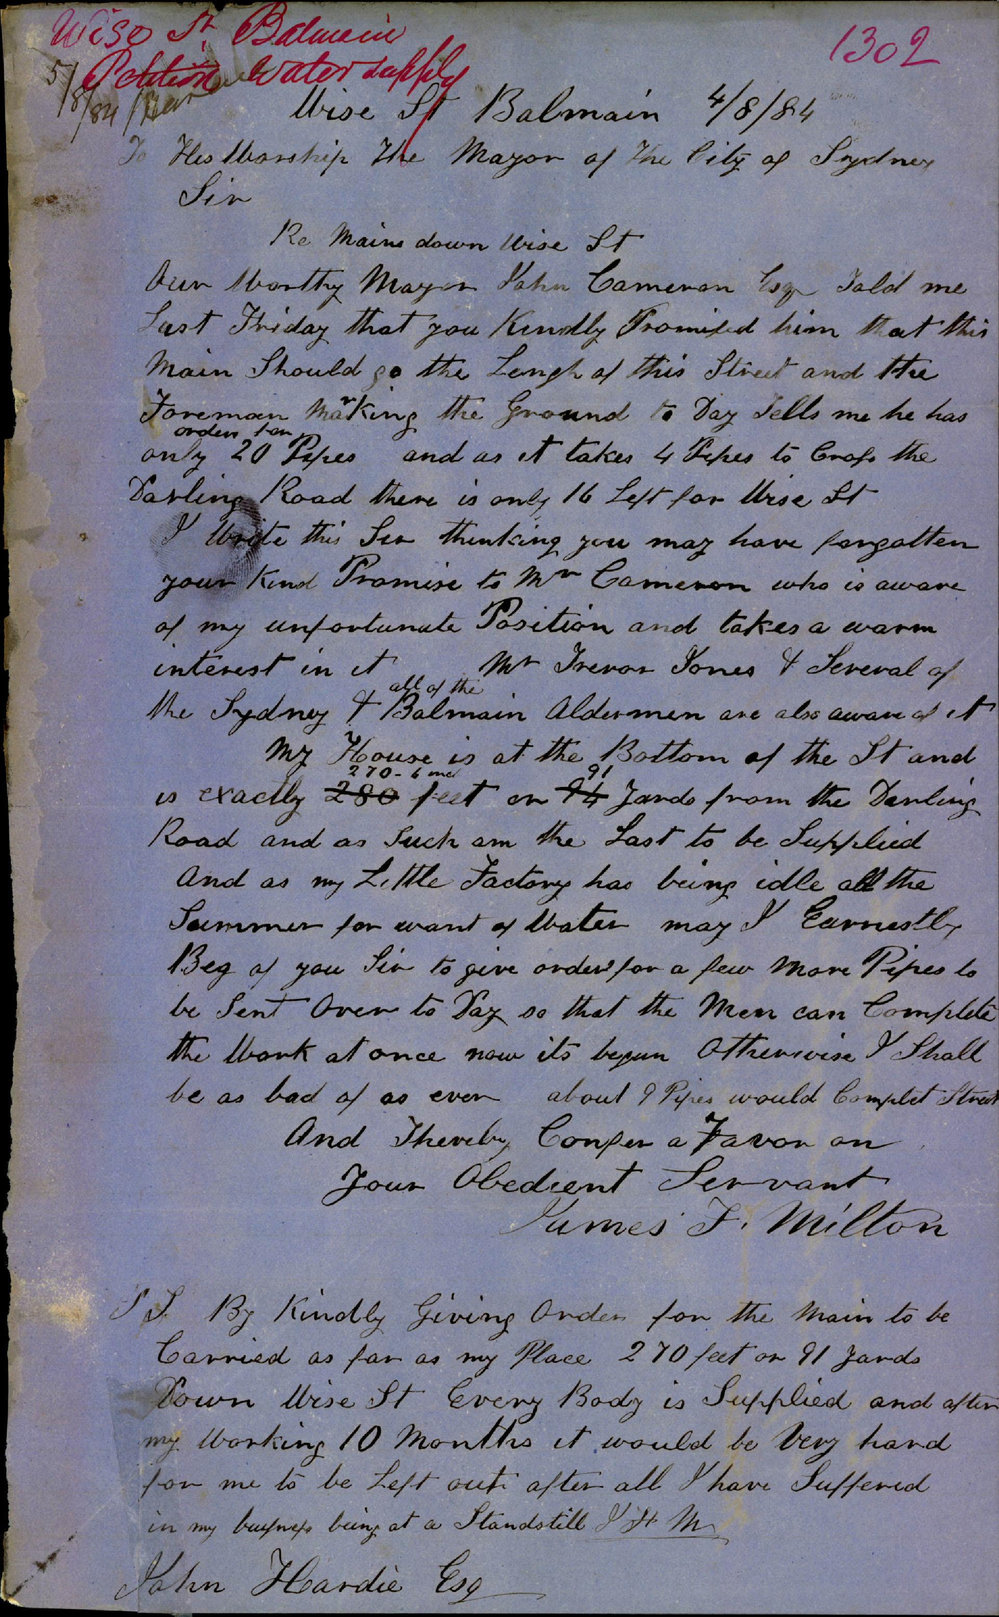 Wise St Balmain
Petition Water supply
5/8/84
1302
Wise St Balmain 4/8/84
To His Worship The Mayor of The City of Sydney
Sir
Re Mains down Wise St
Our Worthy Mayor John Cameron Esqr Told me
Last Friday that you Kindly Promised him that this
Main Should go the Lengh of this Street and the
Foreman Marking the Ground to Day Tells me he has
order for
only 20 Pipes and as it takes 4 Pipes to Cross the
Darling Road there is only 16 Left for Wise St
I Write this Sir thinking you may have forgotten
your Kind Promise to Mr Cameron who is aware
of my unfortunate Position and takes a warm
interest in it Mr Trevor Jones & Several of
all of the
the Sydney & Balmain Aldermen are also aware of it
My House is at the Bottom of the St and
270-6 91
is exactly 280 feet or 94 Yards from the Darling
Road and as Such am the Last to be Supplied
And as my Little Factory has being idle all the
Summer for want of Water may I Earnestly
Beg of you Sir to give orders for a few More Pipes to
be Sent Over to Day so that the Men can Complete
the Work at once now its begun Otherwise I Shall
be as bad of as ever about 9 Pipes would Complet Street
And Thereby Confer a Favor on
Your Obedient Servant
James F. Milton
P S. By Kindly Giving Order for the Main to be
Carried as far as my Place 270 feet or 91 Yards
Down Wise St Every Body is Supplied and after
my Working 10 Months it would be Very hard
for me to be Left out after all I have Suffered
in my busness being at a Standstill J F M
John Hardie Esq